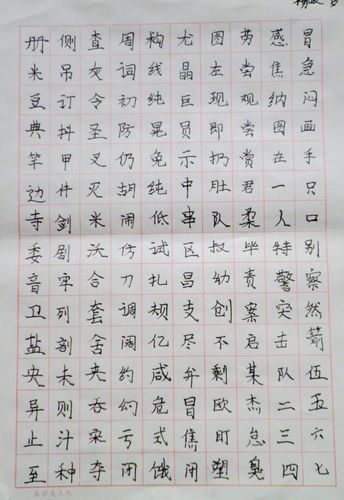 册侧查周构尤图劳感冒
米吊友词线晶左尝焦急
豆订令初纯巨现观纳闷
典抖圣防晃员即尝图画
竿甲叉仍免示扔赏在手
边件灭胡纯中肚君一只
寺剑米闹低串队柔人口
委剧沃仿试区叔毕特别
音牢合刀扎昌幼责警察
卫列套调规支创案突然
盐剖舍阔亿尽不启击箭
央未夹约咸弁剩某队伍
异则吞幻危冒欧杰二五
止汁朵亏式焦盯怠三六
至种夺闭饿闲塑臭四七